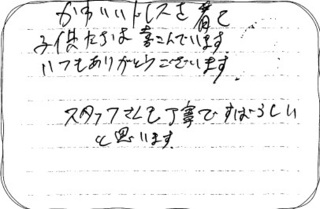 かわいいドレスを着て
子供たちは喜こんでいます。
いつもありがとうございます。
スタッフさんも丁寧ですばらしい
と思います。